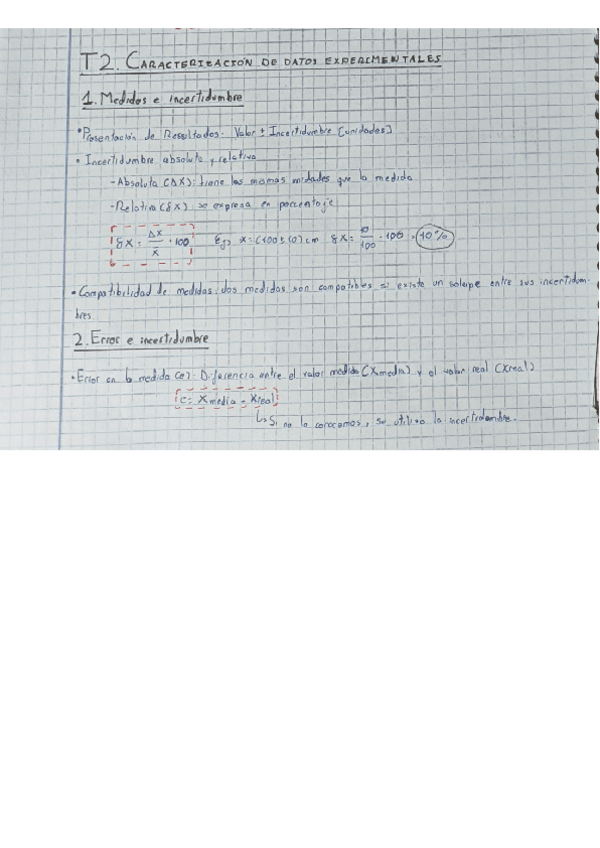 T2. CARACTERIZACIÓN DE DATOS EXPERIMENTALES
1. Medidas e incertidumbre
• Presentación de Resultados. Valor ± Incertidumbre [unidades]
• Incertidumbre absoluta y relativa
- Absoluta (ΔX): tiene las mismas unidades que la medida
- Relativa (δX) se expresa en porcentaje
δX = ΔX / x̄ · 100 Ej: x = (100 ± 10) cm δX = 10 / 100 · 100 = 10%
• Compatibilidad de medidas: dos medidas son compatibles si existe un solape entre sus incertidum-
bres.
2. Error e incertidumbre
• Error en la medida (e): Diferencia entre el valor medido (Xmedia) y el valor real (Xreal)
e = Xmedia - Xreal
↳ Si no la conocemos, se utiliza la incertidumbre.